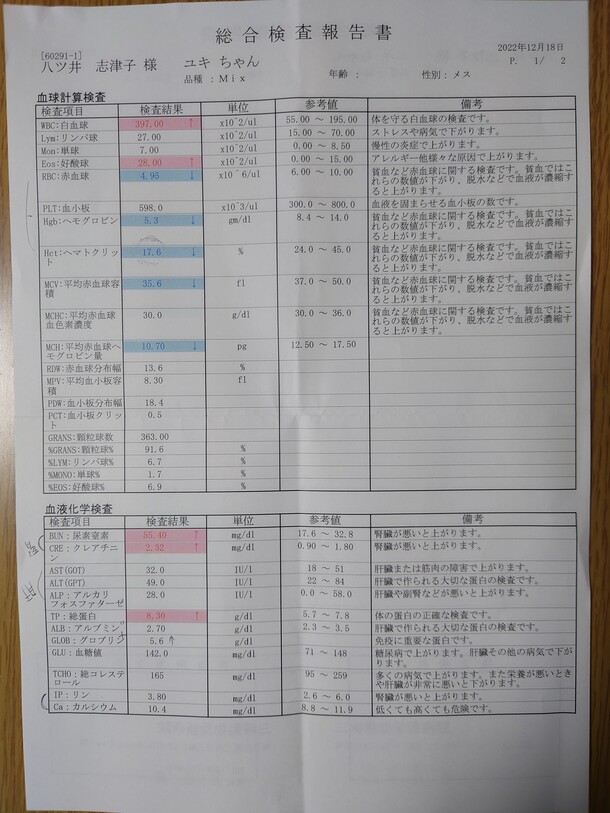 総合検査報告書
2022年12月18日
P. 1/ 2
[60291-1]
八ツ井 志津子 様 ユキ ちゃん
品種 : Mix 年齢 : 性別 : メス
血球計算検査
検査項目 検査結果 単位 参考値 備考
WBC:白血球 397.00 ↑ x10^2/ul 55.00 ~ 195.00 体を守る白血球の検査です。
Lym:リンパ球 27.00 x10^2/ul 15.00 ~ 70.00 ストレスや病気で下がります。
Mon:単球 7.00 x10^2/ul 0.00 ~ 8.50 慢性の炎症で上がります。
Eos:好酸球 28.00 ↑ x10^2/ul 0.00 ~ 15.00 アレルギー他様々な原因で上がります。
RBC:赤血球 4.95 ↓ x10^6/ul 6.00 ~ 10.00 貧血など赤血球に関する検査です。貧血ではこ
れらの数値が下がり、脱水などで血液が濃縮す
ると上がります。
PLT:血小板 598.0 x10^3/ul 300.0 ~ 800.0 血液を固まらせる血小板の数です。
Hgb:ヘモグロビン 5.3 ↓ gm/dl 8.4 ~ 14.0 貧血など赤血球に関する検査です。貧血ではこ
れらの数値が下がり、脱水などで血液が濃縮す
ると上がります。
Hct:ヘマトクリッ
ト 17.6 ↓ % 24.0 ~ 45.0 貧血など赤血球に関する検査です。貧血ではこ
れらの数値が下がり、脱水などで血液が濃縮す
ると上がります。
MCV:平均赤血球容
積 35.6 ↓ fl 37.0 ~ 50.0 貧血など赤血球に関する検査です。貧血ではこ
れらの数値が下がり、脱水などで血液が濃縮す
ると上がります。
MCHC:平均赤血球
血色素濃度 30.0 g/dl 30.0 ~ 36.0 貧血など赤血球に関する検査です。貧血ではこ
れらの数値が下がり、脱水などで血液が濃縮す
ると上がります。
MCH:平均赤血球ヘ
モグロビン量 10.70 ↓ pg 12.50 ~ 17.50
RDW:赤血球分布幅 13.6 %
MPV:平均血小板容
積 8.30 fl
PDW:血小板分布幅 18.4
PCT:血小板クリッ
ト 0.5
GRANS:顆粒球数 363.00
%GRANS:顆粒球% 91.6 %
%LYM:リンパ球% 6.7 %
%MONO:単球% 1.7 %
%EOS:好酸球% 6.9 %
血液化学検査
検査項目 検査結果 単位 参考値 備考
BUN：尿素窒素 85.40 ↑ mg/dl 17.6 ~ 32.8 腎臓が悪いと上がります。
CRE：クレアチニ
ン 2.32 ↑ mg/dl 0.90 ~ 1.80 腎臓が悪いと上がります。
AST(GOT) 32.0 IU/l 18 ~ 51 肝臓または筋肉の障害で上がります。
ALT(GPT) 49.0 IU/l 22 ~ 84 肝臓で作られる大切な蛋白の検査です。
ALP：アルカリ
フォスファターゼ 28.0 IU/l 0.0 ~ 58.0 肝臓や副腎などが悪いと上がります。
TP：総蛋白 8.30 ↑ g/dl 5.7 ~ 7.8 体の蛋白の正確な検査です。
ALB：アルブミン 2.70 g/dl 2.3 ~ 3.5 肝臓で作られる大切な蛋白の検査です。
GLOB：グロブリン 5.6 ↑ g/dl 免疫に重要な蛋白です。
GLU：血糖値 142.0 mg/dl 71 ~ 148 糖尿病で上がります。肝臓その他の病気で下が
ります。
TCHO：総コレステ
ロール 165 mg/dl 95 ~ 259 多くの病気で上がります。また栄養が悪いとき
や肝臓が非常に悪いと下がります。
IP：リン 3.80 mg/dl 2.6 ~ 6.0 腎臓が悪いと上がります。
Ca：カルシウム 10.4 mg/dl 8.8 ~ 11.9 低くても高くても危険です。